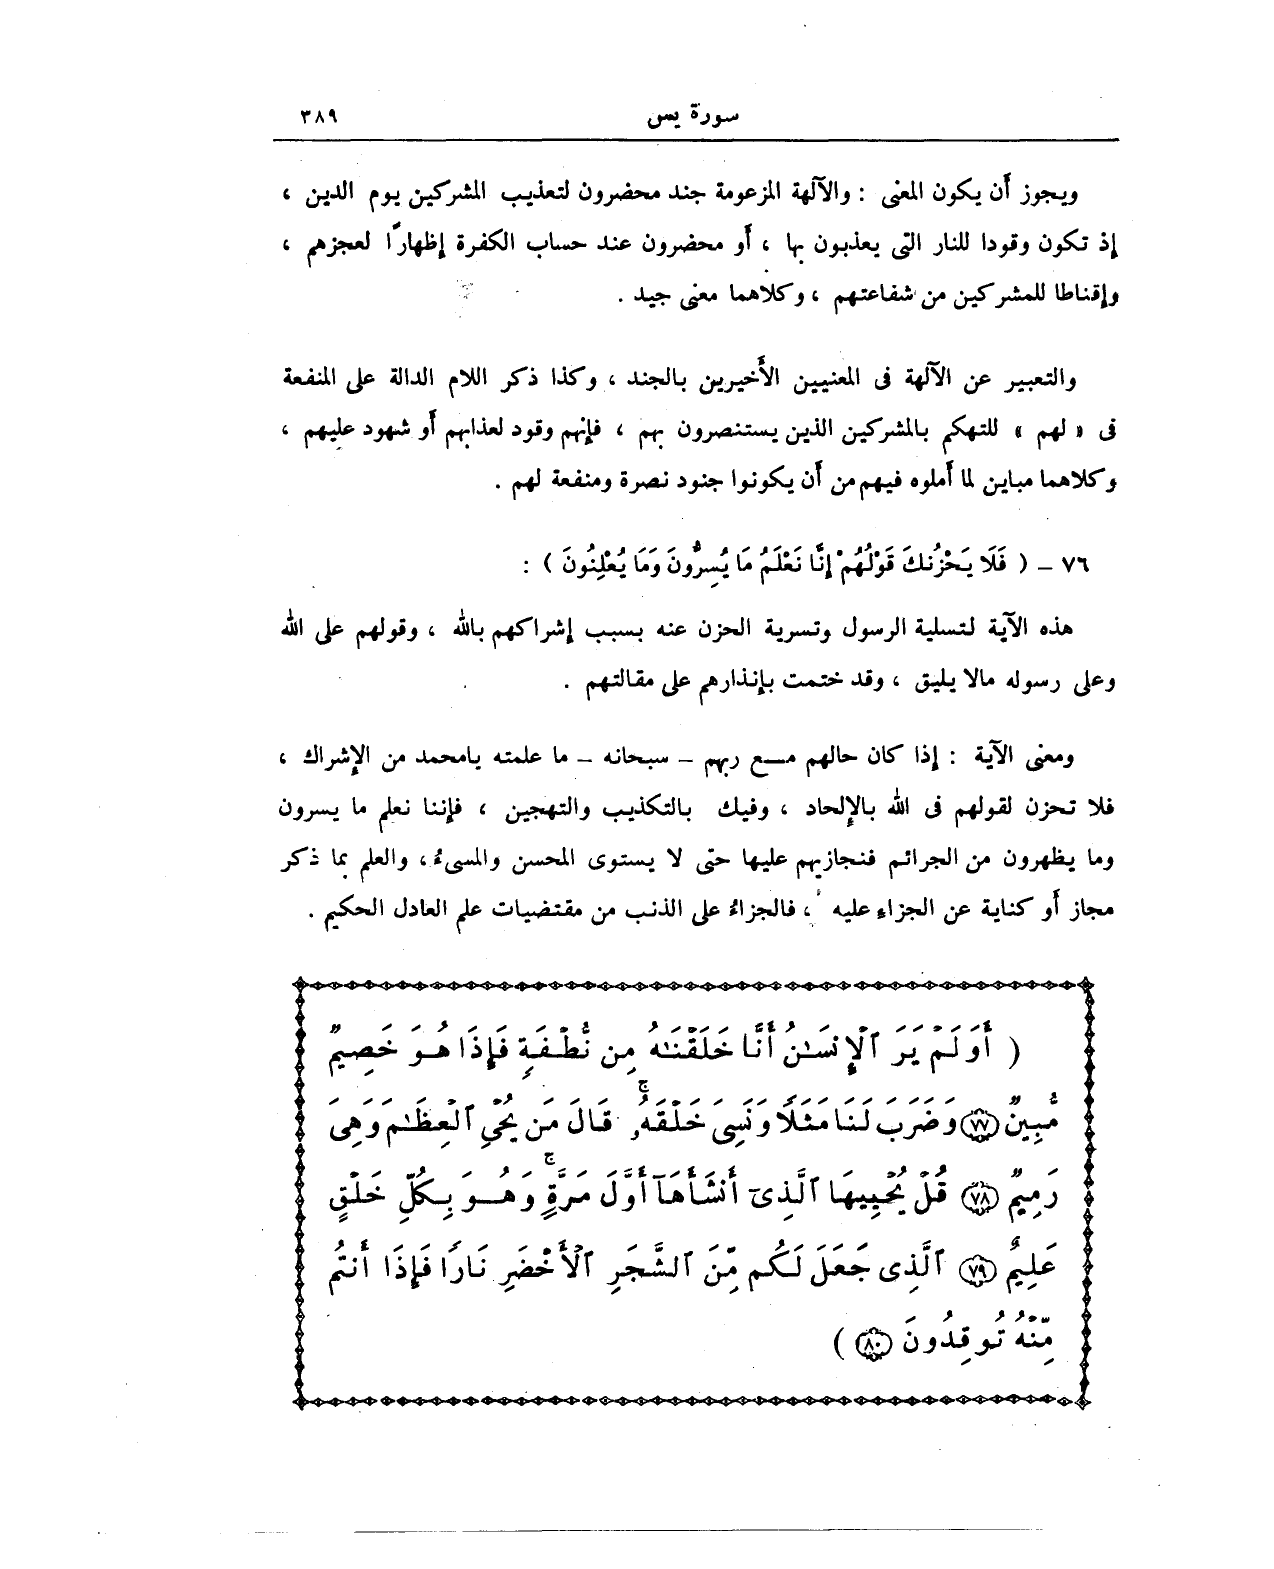 سورة يس ٣٨٩
ويجوز أن يكون المعنى : والآلهة المزعومة جند محضرون لتعذيب المشركين يوم الدين ،
إذ تكون وقودا للنار التى يعذبون بها ، أو محضرون عند حساب الكفرة إظهارًا لعجزهم ،
وإقناطا للمشركين من شفاعتهم ، وكلاهما معنى جيد .
والتعبير عن الآلهة فى المعنيين الأخيرين بالجند ، وكذا ذكر اللام الدالة على المنفعة
فى « لهم » للتهكم بالمشركين الذين يستنصرون بهم ، فإنهم وقود لعذابهم أو شهود عليهم ،
وكلاهما مباين لما أملوه فيهم من أن يكونوا جنود نصرة ومنفعة لهم .
٧٦ – ( فَلَا يَحْزُنكَ قَوْلُهُمْ إِنَّا نَعْلَمُ مَا يُسِرُّونَ وَمَا يُعْلِنُونَ ) :
هذه الآية لتسلية الرسول وتسرية الحزن عنه بسبب إشراكهم بالله ، وقولهم على الله
وعلى رسوله مالا يليق ، وقد ختمت بإنذارهم على مقالتهم .
ومعنى الآية : إذا كان حالهم مع ربهم – سبحانه – ما علمته يامحمد من الإشراك ،
فلا تحزن لقولهم فى الله بالإلحاد ، وفيك بالتكذيب والتهجين ، فإننا نعلم ما يسرون
وما يظهرون من الجرائم فنجازيهم عليها حتى لا يستوى المحسن والمسىءُ ، والعلم بما ذكر
مجاز أو كناية عن الجزاءِ عليه ، فالجزاءُ على الذنب من مقتضيات علم العادل الحكيم .
( أَوَلَمْ يَرَ ٱلْإِنسَـٰنُ أَنَّا خَلَقْنَـٰهُ مِن نُّطْفَةٍ فَإِذَا هُوَ خَصِيمٌ
مُّبِينٌ ٧٧ وَضَرَبَ لَنَا مَثَلًا وَنَسِىَ خَلْقَهُۥ ۖ قَالَ مَن يُحْىِ ٱلْعِظَـٰمَ وَهِىَ
رَمِيمٌ ٧٨ قُلْ يُحْيِيهَا ٱلَّذِىٓ أَنشَأَهَآ أَوَّلَ مَرَّةٍ ۖ وَهُوَ بِكُلِّ خَلْقٍ
عَلِيمٌ ٧٩ ٱلَّذِى جَعَلَ لَكُم مِّنَ ٱلشَّجَرِ ٱلْأَخْضَرِ نَارًا فَإِذَآ أَنتُم
مِّنْهُ تُوقِدُونَ ٨٠ )